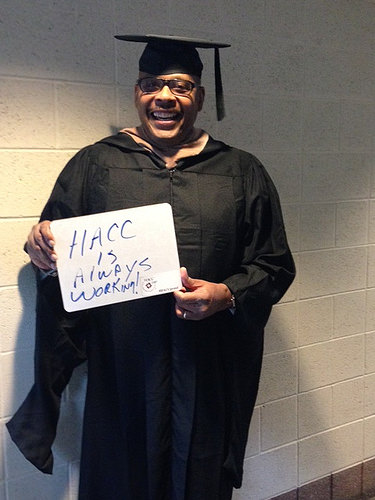 HACC
IS
AlWAYS
WORKING!